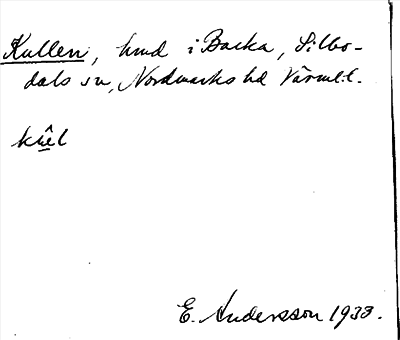 Kullen, hmd i Backa, Silbo-
dals sn, Nordmarks hd Värml.
E. Andersson 1933.